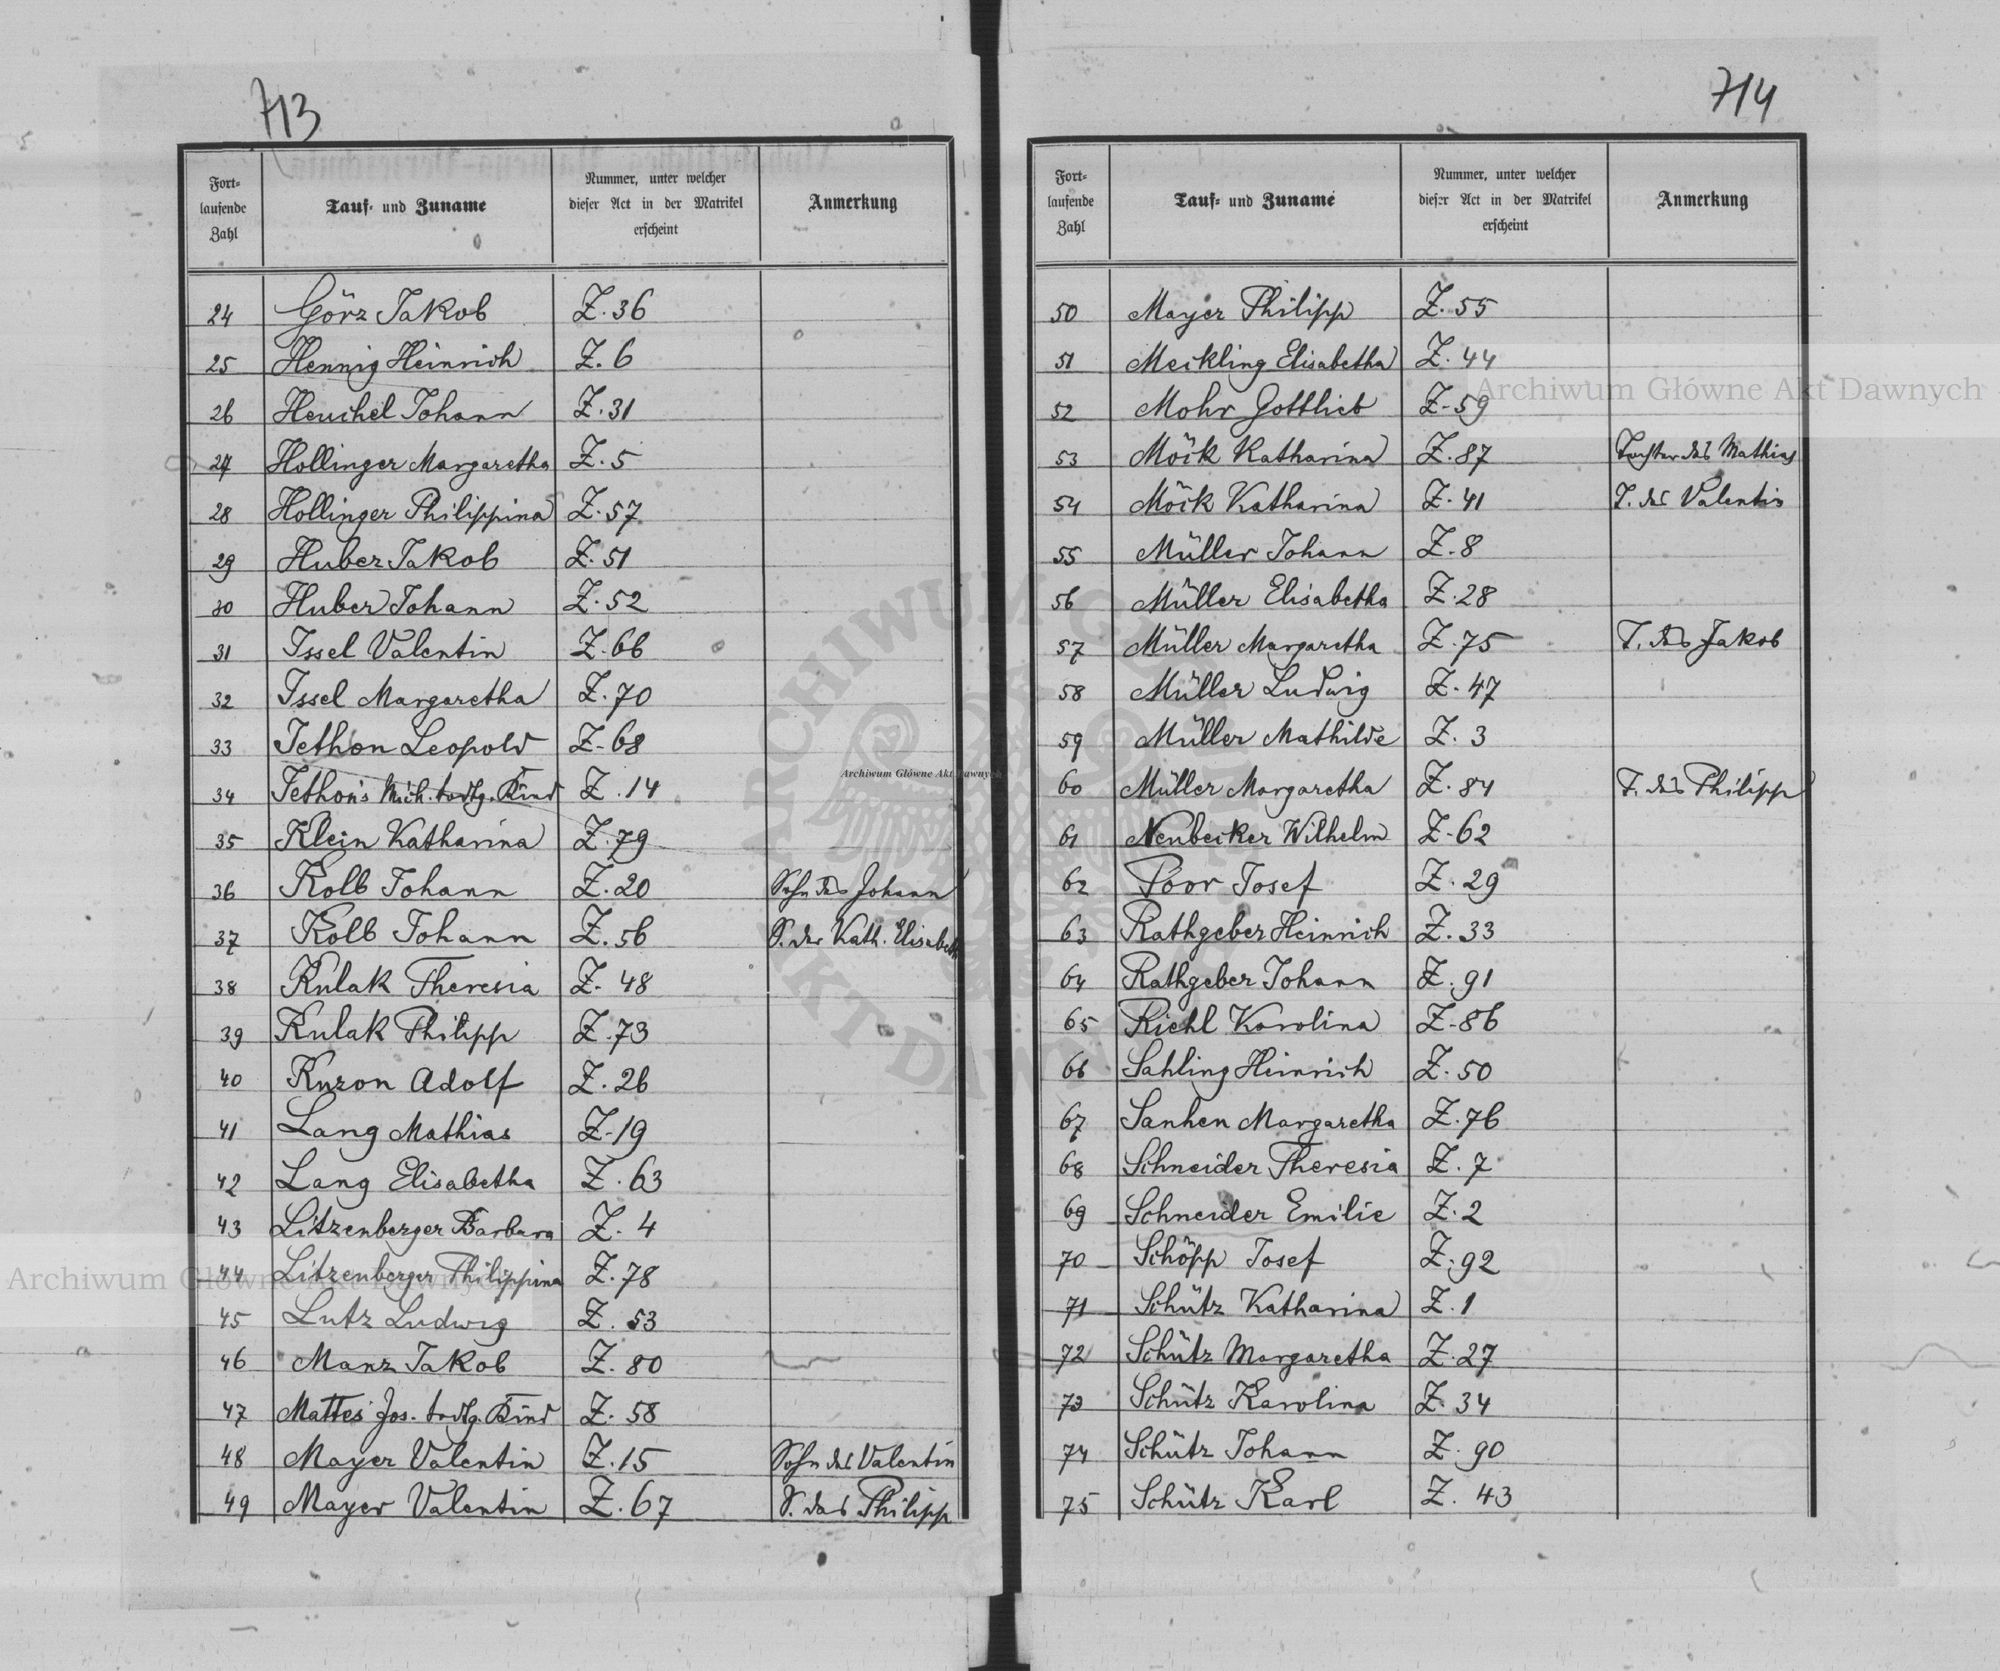 713
Fort-
laufende
Zahl
Tauf- und Zuname
Nummer, unter welcher
dieser Act in der Matrikel
erscheint
Anmerkung
24 Görz Jakob Z. 36
25 Hennig Heinrich Z. 6
26 Heuchel Johann Z. 31
27 Hollinger Margaretha Z. 5
28 Hollinger Philippina Z. 57
29 Huber Jakob Z. 51
30 Huber Johann Z. 52
31 Issel Valentin Z. 66
32 Issel Margaretha Z. 70
33 Jethon Leopold Z. 68
34 Jethon's Mich. todtg. Kind Z. 14
35 Klein Katharina Z. 79
36 Kolb Johann Z. 20 Sohn des Johann
37 Kolb Johann Z. 56 S. der Kath. Elisabeth
38 Kulak Theresia Z. 48
39 Kulak Philipp Z. 73
40 Kuron Adolf Z. 26
41 Lang Mathias Z. 19
42 Lang Elisabetha Z. 63
43 Litzenberger Barbara Z. 4
44 Litzenberger Philippina Z. 78
45 Lutz Ludwig Z. 53
46 Manz Jakob Z. 80
47 Mattes Jos. todtg. Kind Z. 58
48 Mayer Valentin Z. 15 Sohn des Valentin
49 Mayer Valentin Z. 67 S. des Philipp
714
Fort-
laufende
Zahl
Tauf- und Zuname
Nummer, unter welcher
dieser Act in der Matrikel
erscheint
Anmerkung
50 Mayer Philipp Z. 55
51 Meckling Elisabetha Z. 44
52 Mohr Gottlieb Z. 59
53 Möck Katharina Z. 87 Tochter des Mathias
54 Möck Katharina Z. 41 T. des Valentin
55 Müller Johann Z. 8
56 Müller Elisabetha Z. 28
57 Müller Margaretha Z. 75 T. des Jakob
58 Müller Ludwig Z. 47
59 Müller Mathilde Z. 3
60 Müller Margaretha Z. 84 T. des Philipp
61 Neubecker Wilhelm Z. 62
62 Poor Josef Z. 29
63 Rathgeber Heinrich Z. 33
64 Rathgeber Johann Z. 91
65 Riehl Karolina Z. 86
66 Sahling Heinrich Z. 50
67 Sanhen Margaretha Z. 76
68 Schneider Theresia Z. 7
69 Schneider Emilie Z. 2
70 Schöpp Josef Z. 92
71 Schütz Katharina Z. 1
72 Schütz Margaretha Z. 27
73 Schütz Karolina Z. 34
74 Schütz Johann Z. 90
75 Schütz Karl Z. 43
Archiwum Główne Akt Dawnych
Archiwum Główne Akt Dawnych
Archiwum Główne Akt Dawnych
ARCHIWUM GŁÓWNE AKT DAWNYCH